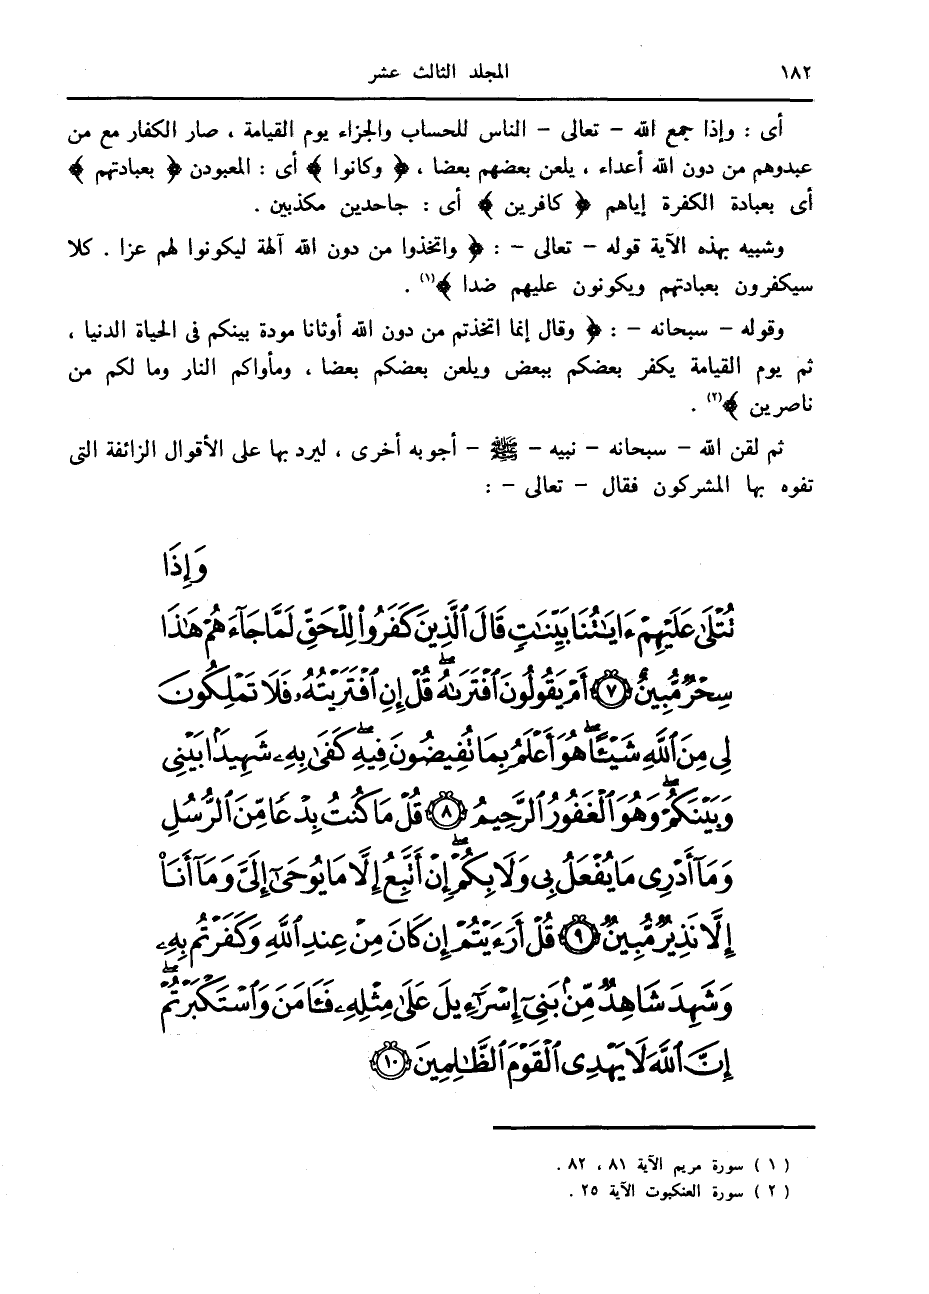 ١٨٢ المجلد الثالث عشر
أى : وإذا جمع الله - تعالى - الناس للحساب والجزاء يوم القيامة ، صار الكفار مع من
عبدوهم من دون الله أعداء ، يلعن بعضهم بعضا ، ﴿ وكانوا ﴾ أى : المعبودن ﴿ بعبادتهم ﴾
أى بعبادة الكفرة إياهم ﴿ كافرين ﴾ أى : جاحدين مكذبين .
وشبيه بهذه الآية قوله - تعالى - : ﴿ واتخذوا من دون الله آلهة ليكونوا لهم عزا . كلا
سيكفرون بعبادتهم ويكونون عليهم ضدا ﴾(١) .
وقوله - سبحانه - : ﴿ وقال إنما اتخذتم من دون الله أوثانا مودة بينكم فى الحياة الدنيا ،
ثم يوم القيامة يكفر بعضكم ببعض ويلعن بعضكم بعضا ، ومأواكم النار وما لكم من
ناصرين ﴾(٢) .
ثم لقن الله - سبحانه - نبيه - ﷺ - أجوبه أخرى ، ليرد بها على الأقوال الزائفة التى
تفوه بها المشركون فقال - تعالى - :
وَإِذَا
تُتْلَىٰ عَلَيْهِمْ ءَايَٰتُنَا بَيِّنَٰتٍ قَالَ ٱلَّذِينَ كَفَرُوا۟ لِلْحَقِّ لَمَّا جَآءَهُمْ هَٰذَا
سِحْرٌ مُّبِينٌ ٧ أَمْ يَقُولُونَ ٱفْتَرَىٰهُ ۖ قُلْ إِنِ ٱفْتَرَيْتُهُۥ فَلَا تَمْلِكُونَ
لِى مِنَ ٱللَّهِ شَيْـًٔا ۖ هُوَ أَعْلَمُ بِمَا تُفِيضُونَ فِيهِ ۖ كَفَىٰ بِهِۦ شَهِيدًۢا بَيْنِى
وَبَيْنَكُمْ ۖ وَهُوَ ٱلْغَفُورُ ٱلرَّحِيمُ ٨ قُلْ مَا كُنتُ بِدْعًا مِّنَ ٱلرُّسُلِ
وَمَآ أَدْرِى مَا يُفْعَلُ بِى وَلَا بِكُمْ ۖ إِنْ أَتَّبِعُ إِلَّا مَا يُوحَىٰٓ إِلَىَّ وَمَآ أَنَا۠
إِلَّا نَذِيرٌ مُّبِينٌ ٩ قُلْ أَرَءَيْتُمْ إِن كَانَ مِنْ عِندِ ٱللَّهِ وَكَفَرْتُم بِهِۦ
وَشَهِدَ شَاهِدٌ مِّنۢ بَنِىٓ إِسْرَٰٓءِيلَ عَلَىٰ مِثْلِهِۦ فَـَٔامَنَ وَٱسْتَكْبَرْتُمْ ۖ
إِنَّ ٱللَّهَ لَا يَهْدِى ٱلْقَوْمَ ٱلظَّٰلِمِينَ ١٠
( ١ ) سورة مريم الآية ٨١ ، ٨٢ .
( ٢ ) سورة العنكبوت الآية ٢٥ .